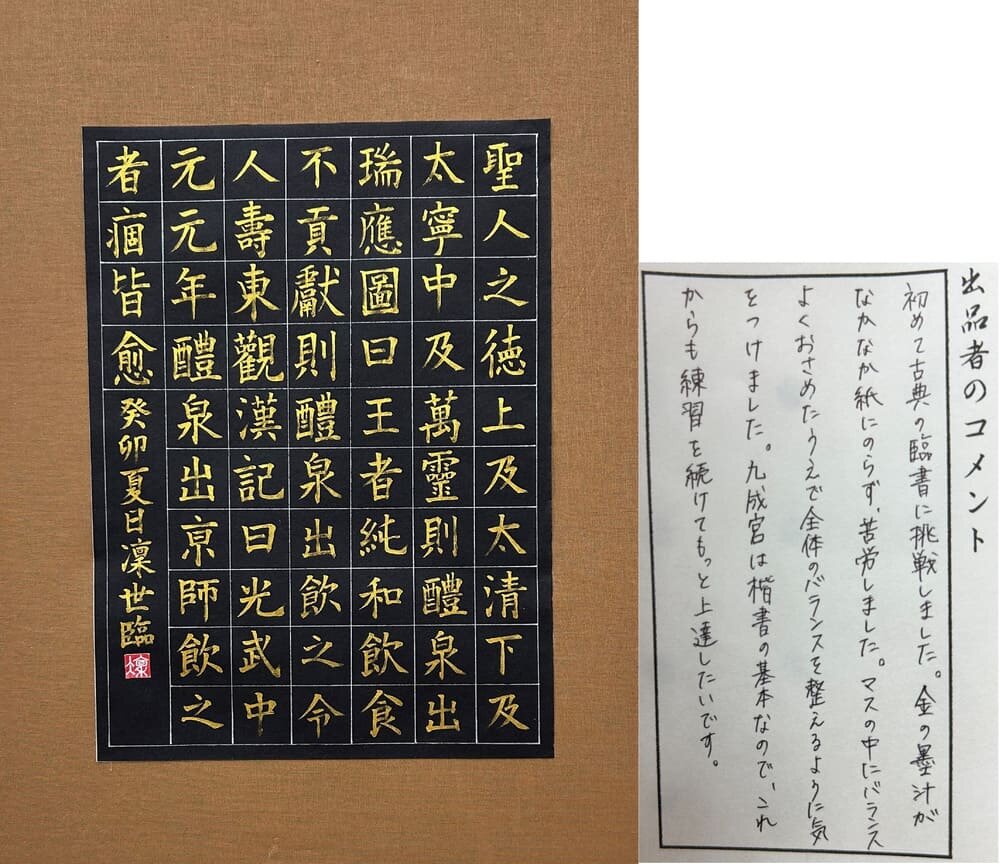 聖人之徳上及太清下及
太寧中及萬靈則醴泉出
瑞應圖曰王者純和飲食
不貢獻則醴泉出飲之令
人壽東觀漢記曰光武中
元元年醴泉出京師飲之
者痼皆愈
癸卯夏日凜世臨
出品者のコメント
初めて古典の臨書に挑戦しました。金の墨汁が
なかなか紙にのらず、苦労しました。マスの中にバランス
よくおさめたうえで全体のバランスを整えるように気
をつけました。九成宮は楷書の基本なので、これ
からも練習を続けてもっと上達したいです。